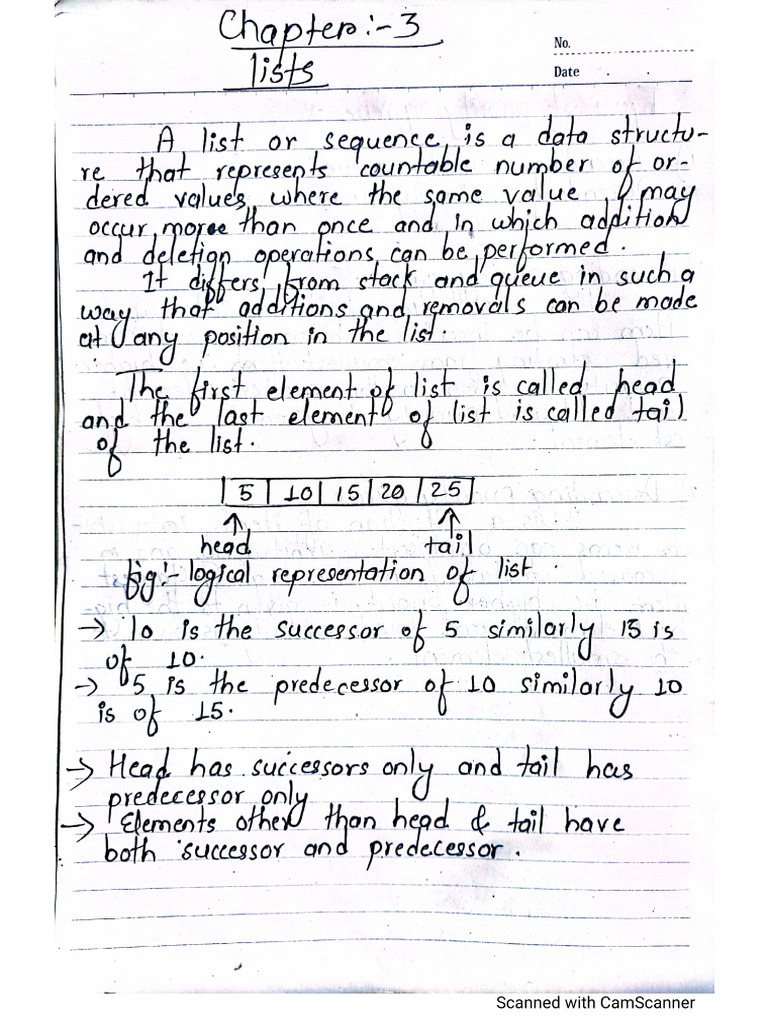 Chapter:-3
lists
No.
Date . .
A list or sequence is a data structu-
re that represents countable number of or-
dered values where the same value may
occur more than once and in which addition
and deletion operations can be performed.
It differs from stack and queue in such a
way that additions and removals can be made
at any position in the list.
The first element of list is called head
and the last element of list is called tail
of the list.
5 | 10 | 15 | 20 | 25
head tail
fig:- logical representation of list.
→ 10 is the successor of 5 similarly 15 is
of 10.
→ 5 is the predecessor of 10 similarly 10
is of 15.
→ Head has successors only and tail has
predecessor only
→ Elements other than head & tail have
both successor and predecessor.
Scanned with CamScanner